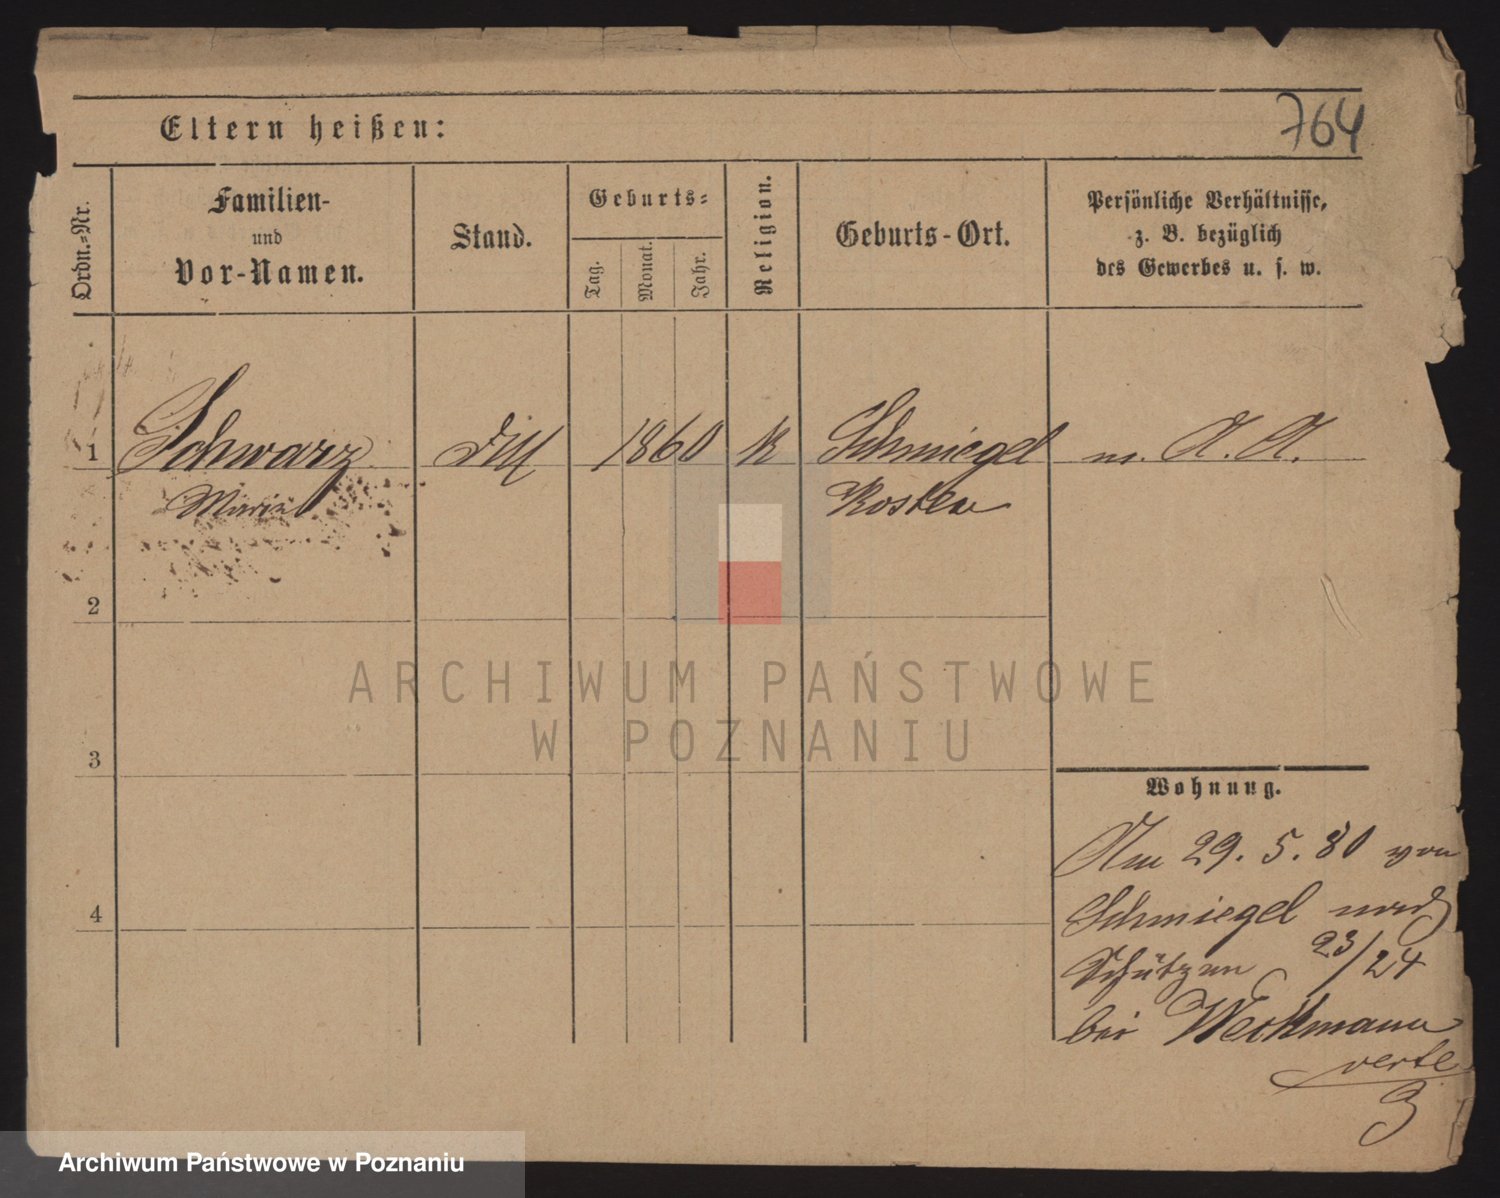 764
Eltern heißen:
Ordn.-Nr.
Familien-
und
Vor-Namen.
Stand.
Geburts-
Tag.
Monat.
Jahr.
Religion.
Geburts-Ort.
Persönliche Verhältnisse,
z. B. bezüglich
des Gewerbes u. s. w.
1 Schwarz 1860 k Schmiegel m. A. A.
Marie Kosten
2
3
4
Wohnung.
Am 29. 5. 80 von
Schmiegel nach
Schützen 23/24
bei Weckmann
verte
ARCHIWUM PAŃSTWOWE
W POZNANIU
Archiwum Państwowe w Poznaniu